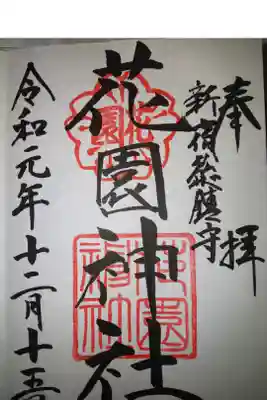 奉拝
新宿総鎮守
花園神社
令和元年十二月十五
花園
花園神社